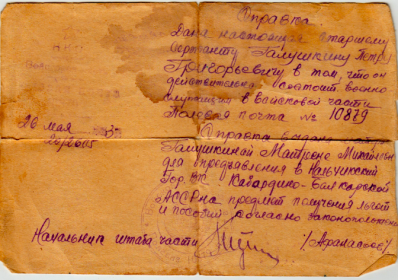 Справка.
Дана настоящая старшему
сержанту Галушкину Петру
Григорьевичу в том, что он
действительно состоит военно
служащим в войсковой части
Полевая почта № 10879
26 мая
Справка выдана
Галушкиной Матрене Михайловне
для предъявления в Нальчикский
Гор. ВК Кабардино-Балкарской
АССР на предмет получения льгот
и пособий согласно законоположения
Начальник штаба части /Афанасьев/